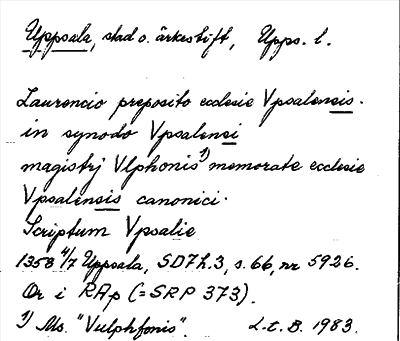 Uppsala, stad o. ärkestift, Upps. l.
Laurencio preposito ecclesie Vpsalensis.
in synodo Vpsalensi
magistrj Vlphonis 1) memorate ecclesie
Vpsalensis canonici.
Scriptum Vpsalie
1358 4/7 Uppsala, SD 7 h. 3, s. 66, nr 5926.
Or i RAp (= SRP 373).
1) Ms. "Vulphfonis". L.t. B. 1983.